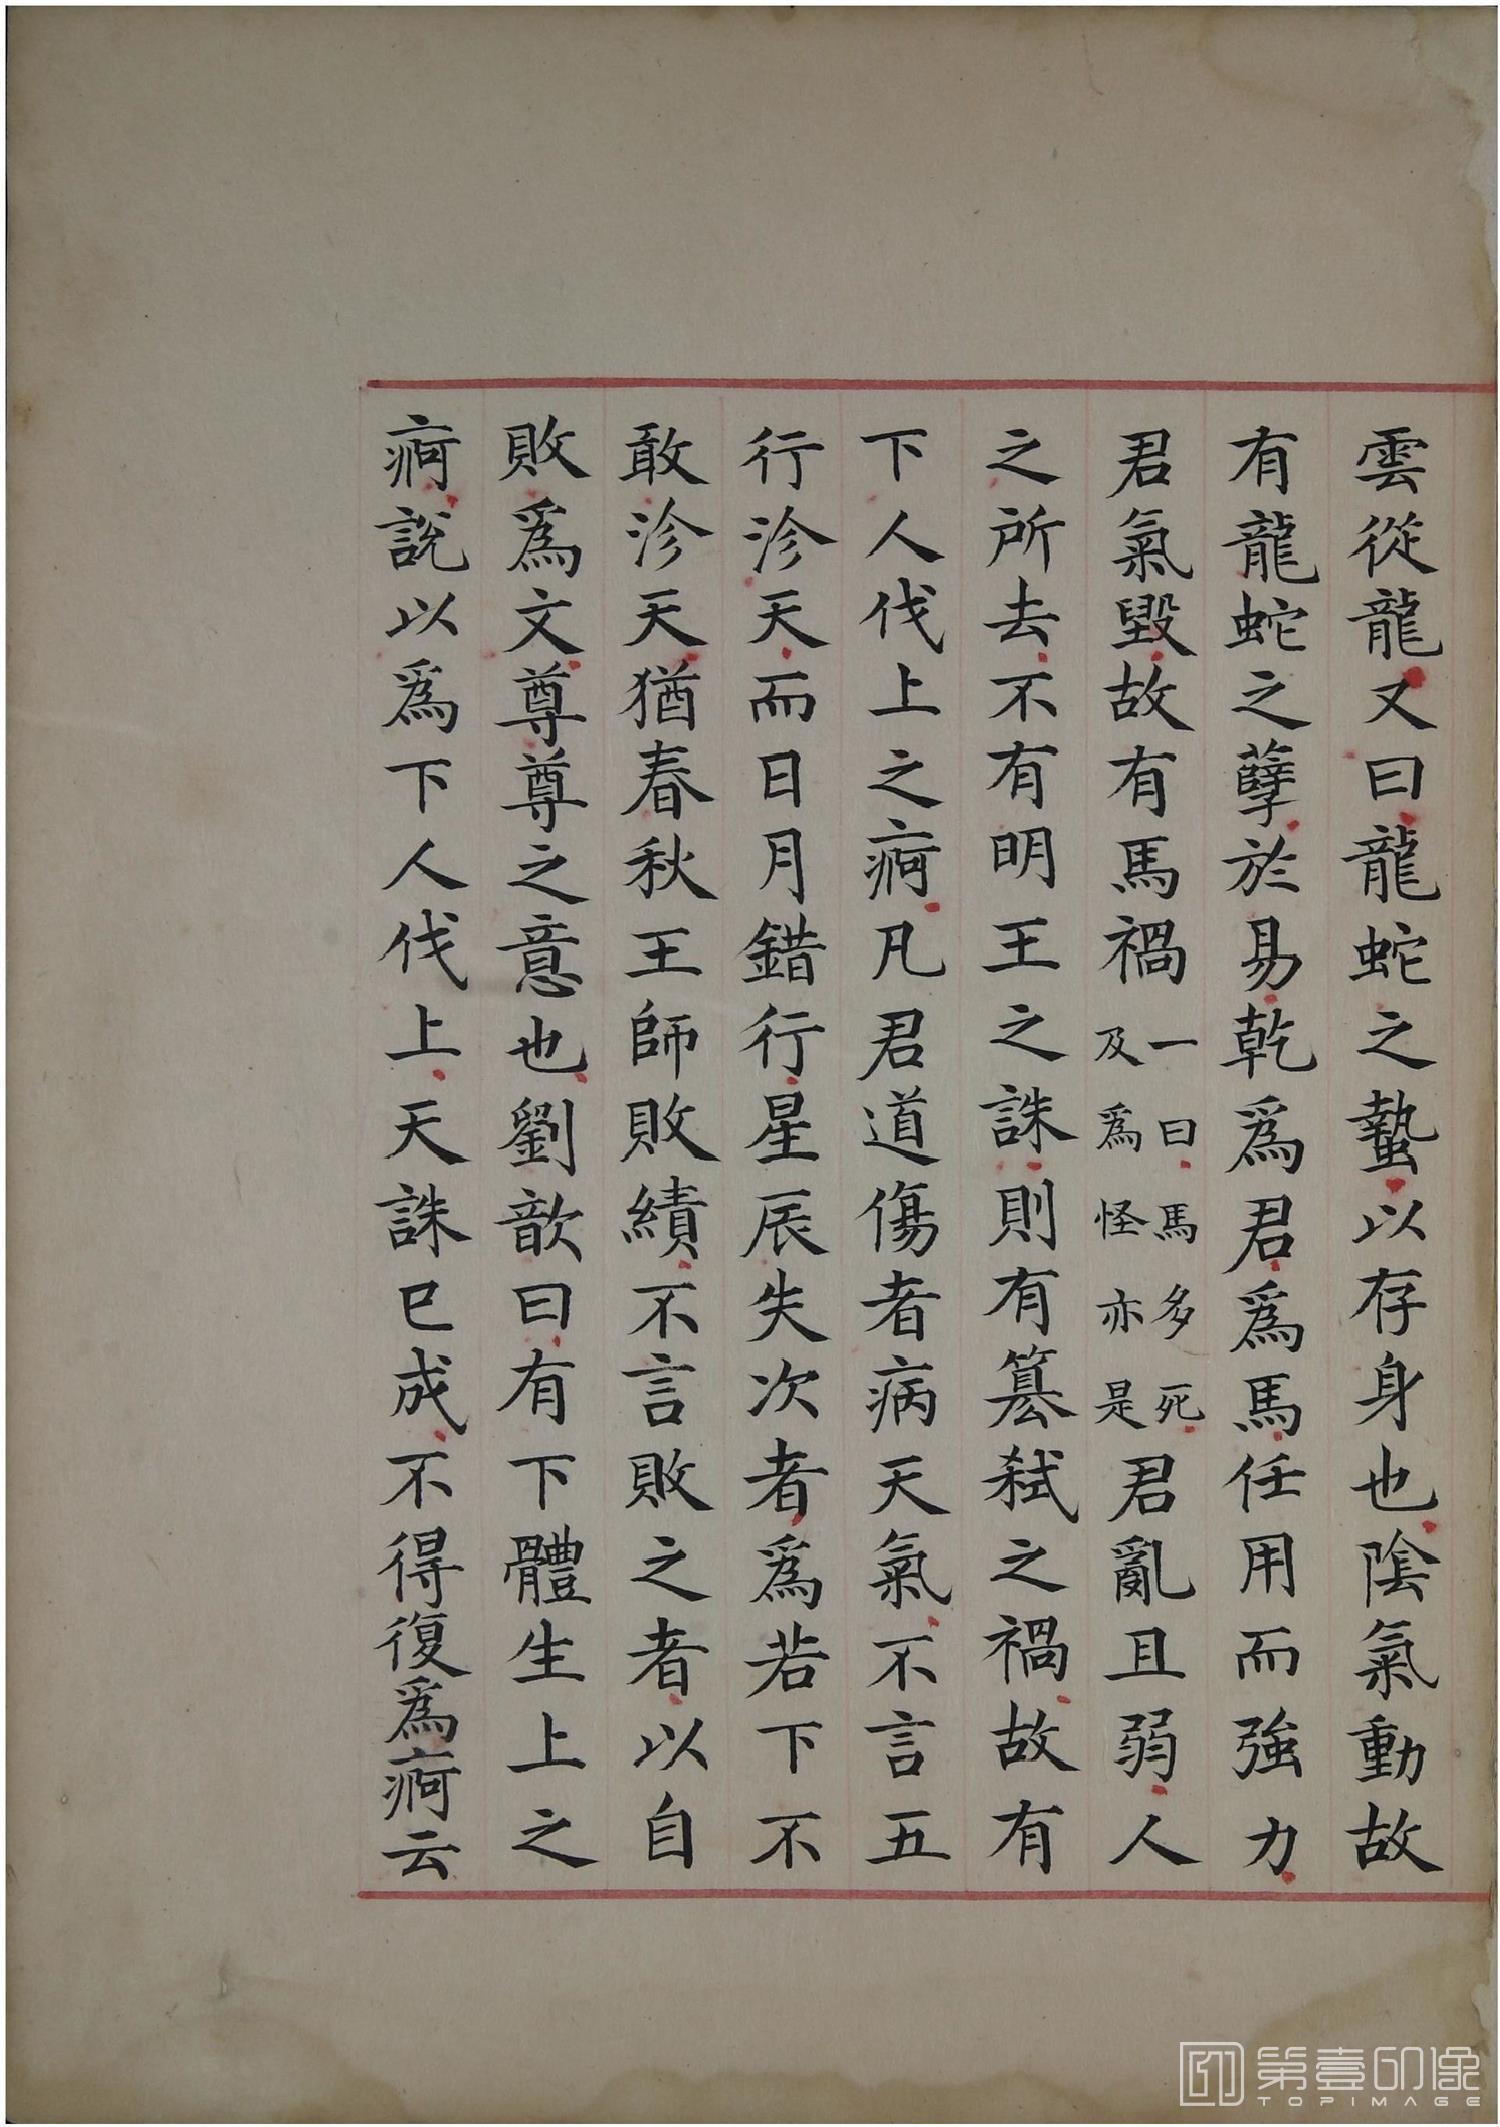 雲從龍又曰龍蛇之蟄以存身也陰氣動故
有龍蛇之孽於易乾爲君爲馬任用而強力
君氣毀故有馬禍一曰馬多死及爲怪亦是君亂且弱人
之所去不有明王之誅則有篡弒之禍故有
下人伐上之痾凡君道傷者病天氣不言五
行沴天而日月錯行星辰失次者爲若下不
敢沴天猶春秋王師敗績不言敗之者以自
敗爲文尊尊之意也劉歆曰有下體生上之
痾說以爲下人伐上天誅已成不得復爲痾云
第壹印像
TOPIMAGE